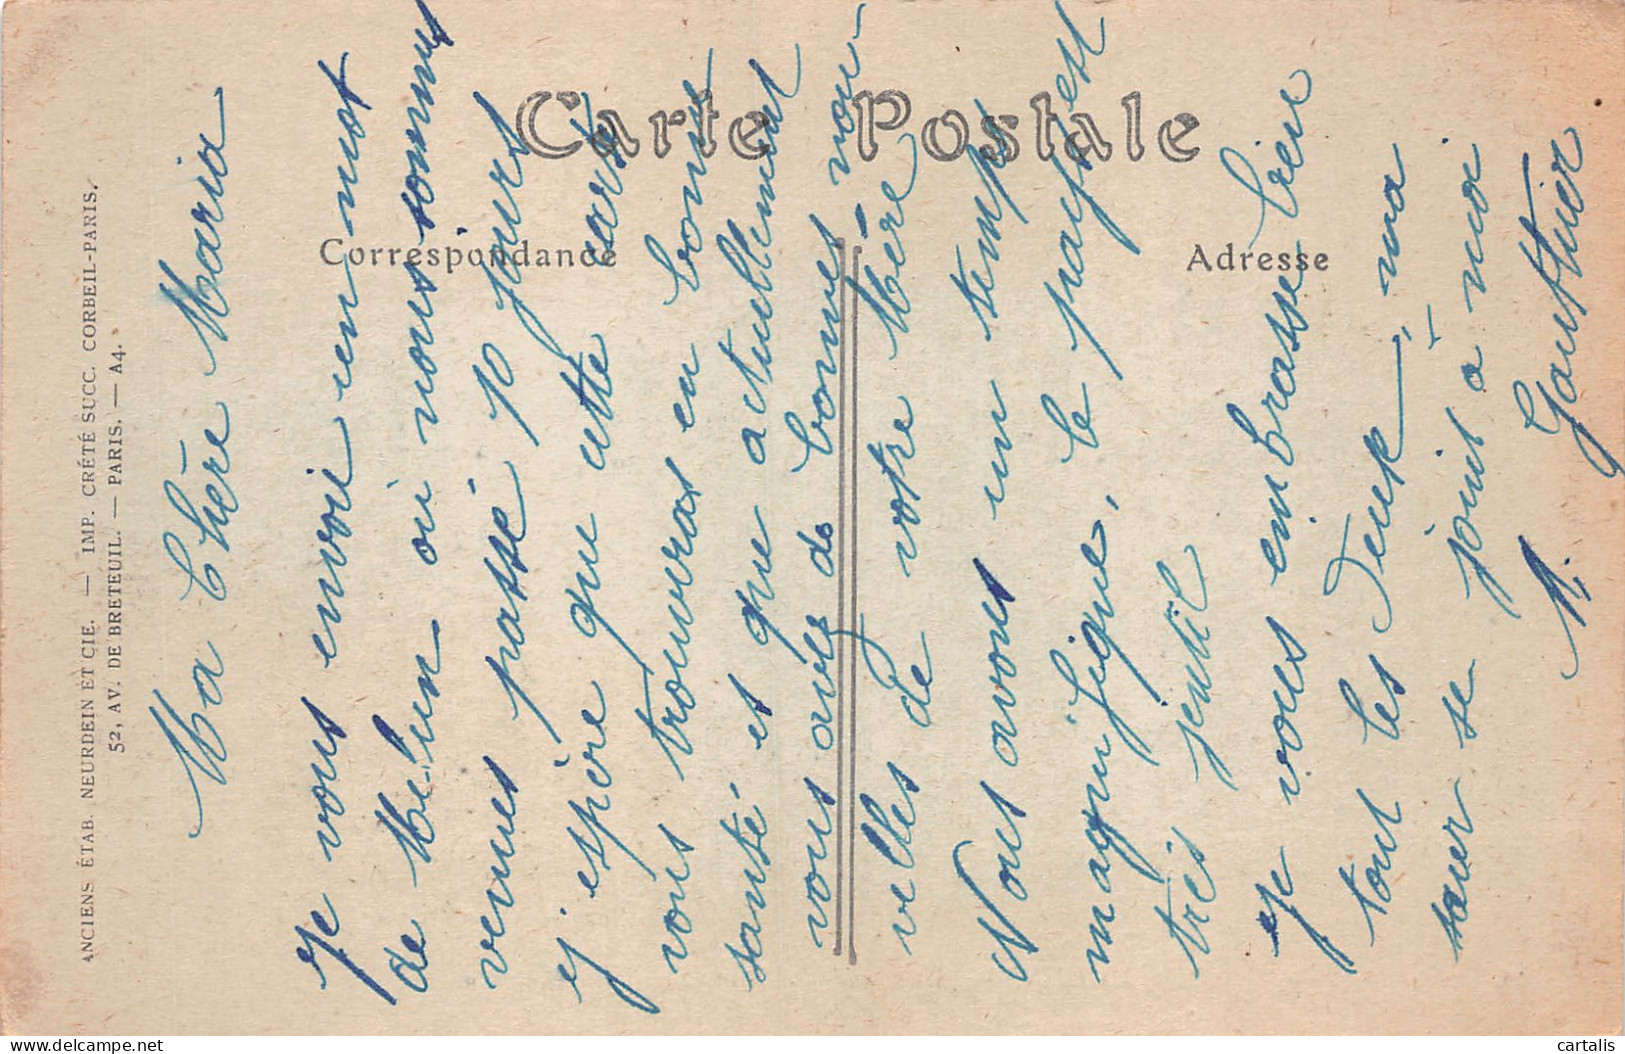 Carte Postale
Correspondance
Adresse
ANCIENS ÉTAB. NEURDEIN ET CIE. — IMP. CRÉTÉ SUCC. CORBEIL-PARIS.
52, AV. DE BRETEUIL. — PARIS. — A4.
Ma Chère Maria
Je vous envoie un mot
de Melun où nous sommes
venues passé 10 jours
j'espère que cette carte
vous trouveras en bonne
santé et que actuellement
vous avez de bonnes nou-
velles de votre Mère
Nous avons un temps
magnifique, le pays est
très jentil
Je vous embrasse bien
tout les deux, ma
sœur se joint à moi
Gautier
delcampe.net
cartalis